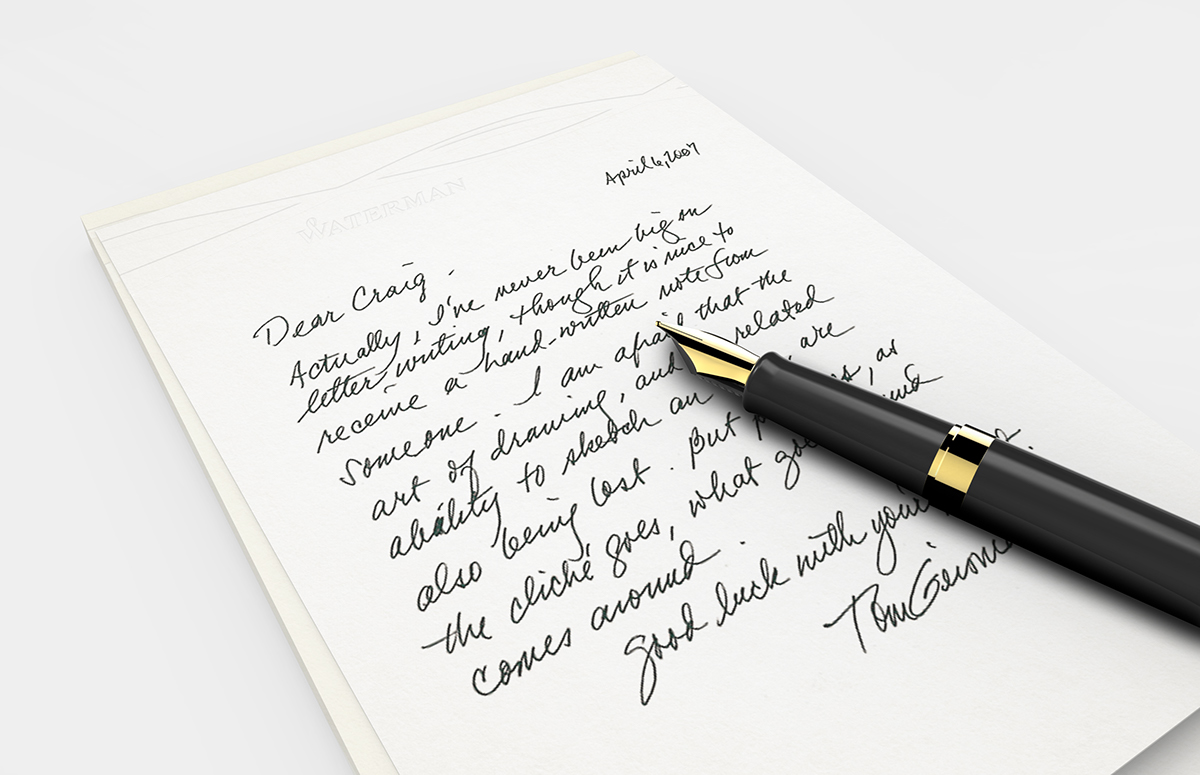 WATERMAN
April 6, 2007
Dear Craig,
Actually, I've never been big on
letter writing, though it is nice to
receive a hand-written note from
someone. I am afraid that the
art of drawing, and related
ability to sketch an , are
also being lost. But , as
the cliché goes, what
comes around.
good luck with
Tom